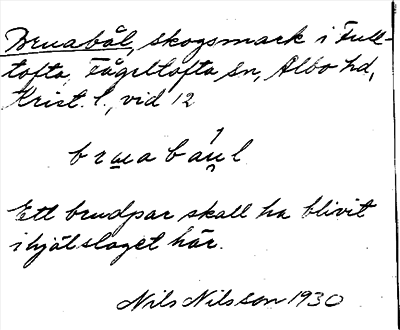 Bruabål, skogsmark i Full-
tofta, Fågeltofta sn, Albo hd,
Krist. l., vid 12
Ett brudpar skall ha blivit
ihjälslaget här.
Nils Nilsson 1930